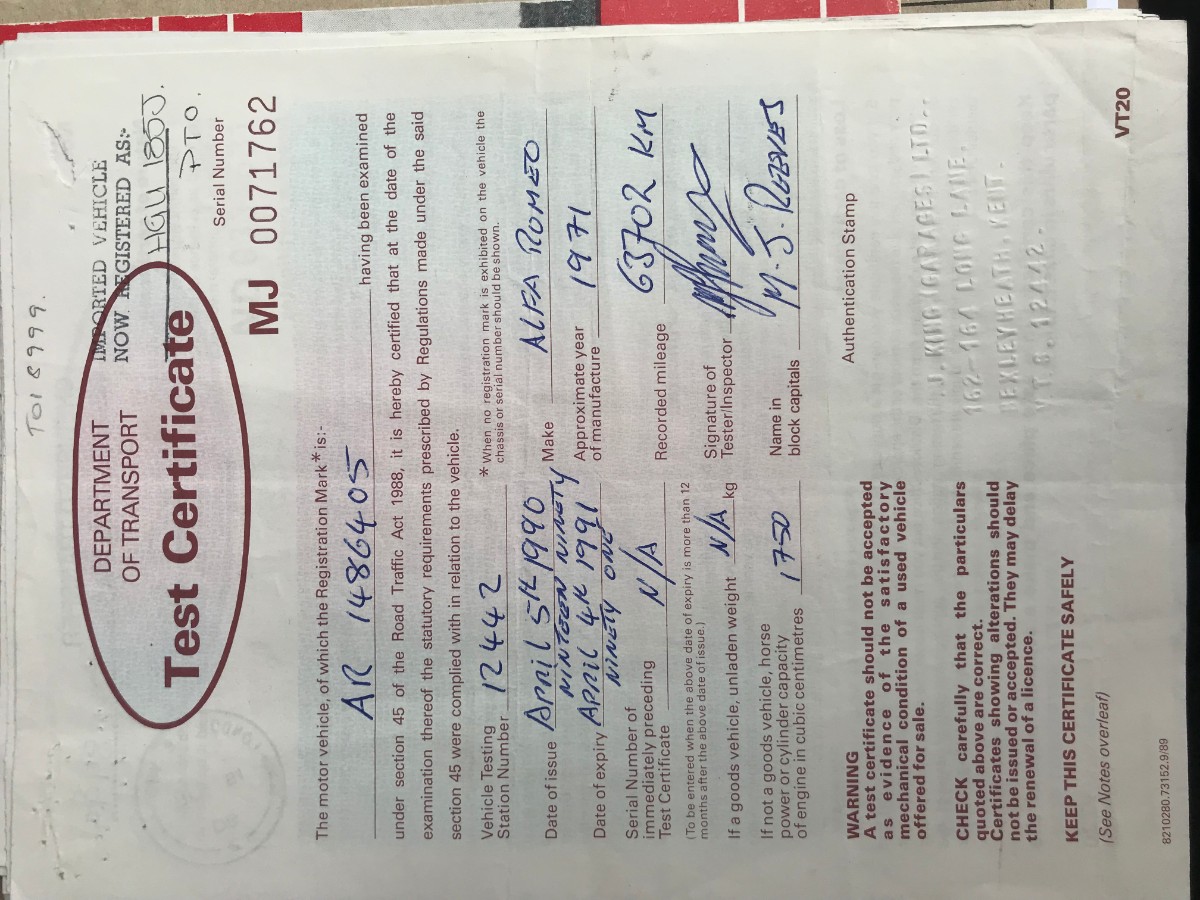 TO18999.
IMPORTED VEHICLE
NOW REGISTERED AS:-
HGU 180J.
PTO.
DEPARTMENT
OF TRANSPORT
Test Certificate
Serial Number
MJ 0071762
The motor vehicle, of which the Registration Mark* is:-
AR 1486405 having been examined
under section 45 of the Road Traffic Act 1988, it is hereby certified that at the date of the
examination thereof the statutory requirements prescribed by Regulations made under the said
section 45 were complied with in relation to the vehicle.
*When no registration mark is exhibited on the vehicle the
chassis or serial number should be shown.
Vehicle Testing
Station Number 12442
Date of issue April 5th 1990
NINTEEN NINETY
Date of expiry April 4th 1991
NINETY ONE
Serial Number of
immediately preceding
Test Certificate N/A
(To be entered when the above date of expiry is more than 12
months after the above date of issue.)
If a goods vehicle, unladen weight N/A kg
If not a goods vehicle, horse
power or cylinder capacity
of engine in cubic centimetres 1750
Make ALFA ROMEO
Approximate year
of manufacture 1971
Recorded mileage 63702 KM
Signature of
Tester/Inspector
Name in
block capitals M. J. REEVES
Authentication Stamp
J. KING (GARAGES) LTD..
162-164 LONG LANE.
BEXLEYHEATH. KENT.
V.T.S. 12442.
WARNING
A test certificate should not be accepted
as evidence of the satisfactory
mechanical condition of a used vehicle
offered for sale.
CHECK carefully that the particulars
quoted above are correct.
Certificates showing alterations should
not be issued or accepted. They may delay
the renewal of a licence.
KEEP THIS CERTIFICATE SAFELY
(See Notes overleaf)
8210280.73152.9/89
VT20